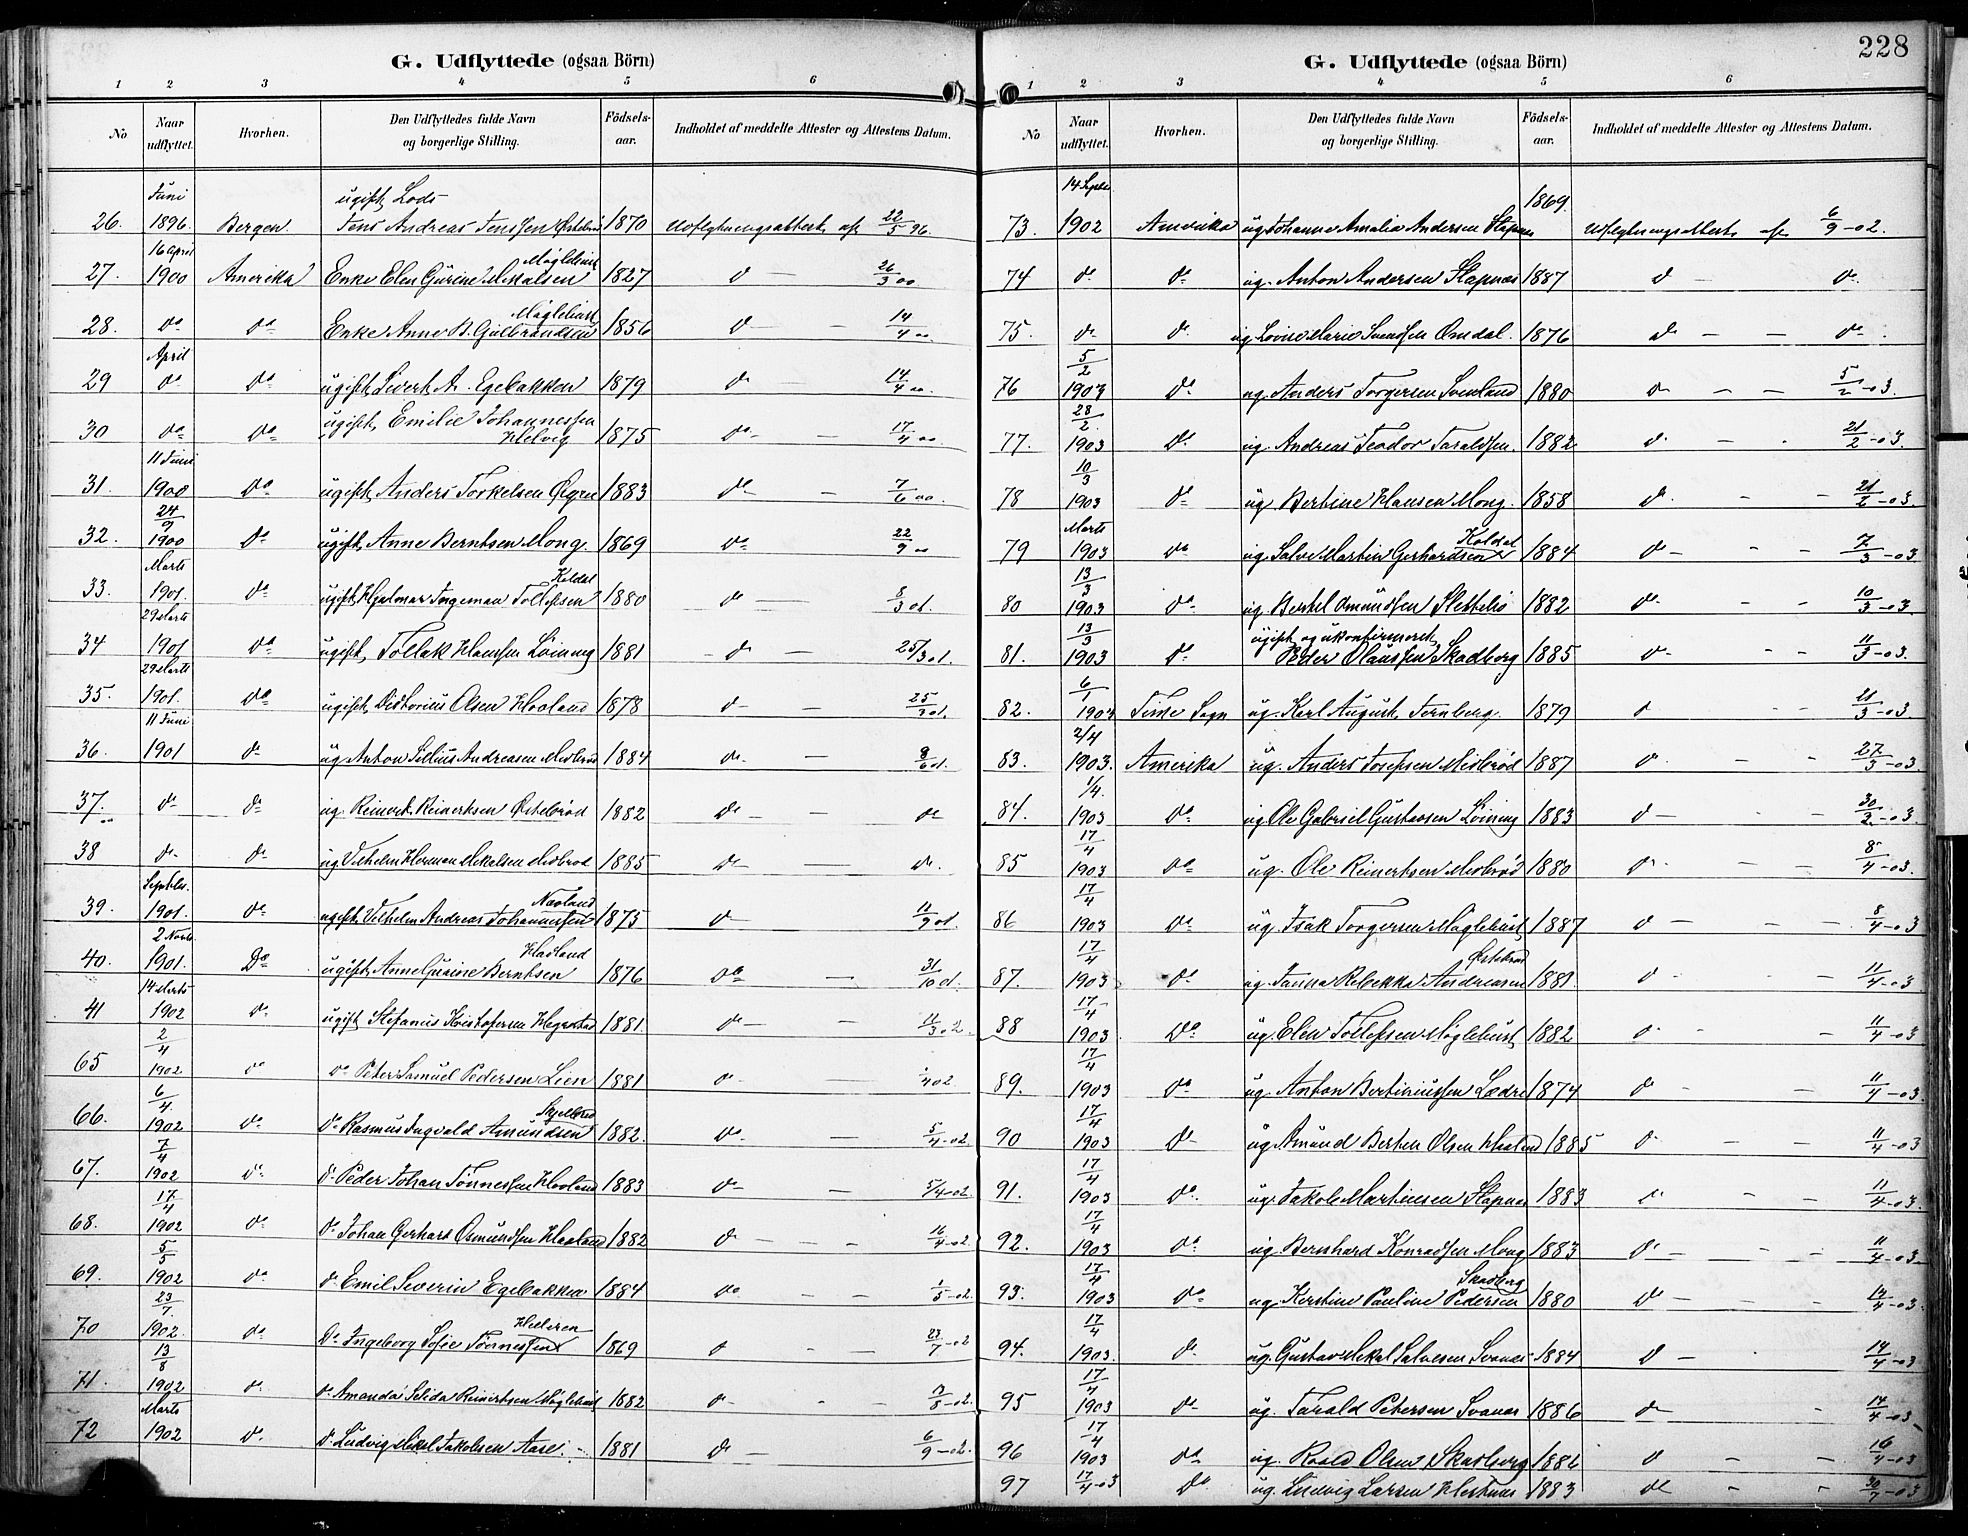 G. Udflyttede (ogsaa Börn)
1 2 3 4 5 6
No Naar udflyttet. Hvorhen. Den Udflyttedes fulde Navn og borgerlige Stilling. Födsels-aar. Indholdet af meddelte Attester og Attestens Datum.
26. Juni 1896. Bergen. ugift, Lods Jens Andreas Jenssen Østebrød 1870 Udflytningsattest af 22/5 96.
27. 16 April 1900 Amerika Enke Elen Gurine Mikalsen Møglehust 1827 d — 26/3 00
28. do do Enke Anne B. Gulbrandsen Møglehust 1856 d — 14/4 00
29 April do do ugift, Sivert A. Egebakken 1879 do — 14/4 00.
30 do do ugift, Emilie Johannessen Helvig 1875 do — 17/4 00.
31. 11 Juni 1900 do ugift, Anders Torkelsen Øgre 1883 do — 7/6 00.
32. 24/9 1900 do ugift, Anne Berntsen Mong. 1869 do 22/9 00
33. Marts 1901. do ugift, Hjalmar Ingeman Tollefsen Koldal 1880 do — 8/3 01.
34 29 Marts 1901 do ugift, Tollak Hanssen Löining 1881 do — 25/3 01.
35. 29 Marts 1901. do ugift, Viktorius Olsen Haaland 1878 d — 25/3 01.
36. 11 Juni 1901 do ug Anton Sellius Andreasen Midbrød 1884 do — 8/6 01.
37. do do ug. Reinert Reinertsen Østebrød 1882 do — do
38 do do ug Vilhelm Herman Mikalsen Midbrød 1885 do — do.
39. Septbr. 1901. do ugift, Vilhelm Andreas Johannessen Navland 1875 d — 11/9 01.
40. 2 Novb. 1901. Do ugift, Anne Gurine Berntsen Haaland 1876 do — 31/10 01.
41 14 Marts 1902 do ugift, Stefanus Kristofersen Hegrestad 1881 do — 11/3 02.
65 2/4 1902 do do Peter Samuel Pedersen Lien 1881 do — /4 02.
66. 6/4. 1902 do do Rasmus Ingvald Amundsen Skjelbred 1882. do — 5/4-02.
67. 7/4 1902 do do Peder Johan Tönnessen Haaland 1883 do — 5/4-02.
68. 17/4 1902 do do Johan Gerhard Osmundsen Haaland 1882 do — 16/4-02.
69. 5/5 1902 do do Emil Severin Egebakken 1884 do — 1/5-02.
70 23/7. 1902. do Do Ingeborg Sofie Tönnessen Helleren 1869 d — 23/7-02
71. 13/8 1902 do do Amanda Selida Reinertsen Møglehust 1882 do — /8-02.
72 Marts 1902 do. do Ludvig Mikal Jakobsen Aase. 1881 do — 6/9-02.
228
G. Udflyttede (ogsaa Börn)
1 2 3 4 5 6
No Naar udflyttet. Hvorhen. Den Udflyttedes fulde Navn og borgerlige Stilling. Födsels-aar. Indholdet af meddelte Attester og Attestens Datum.
73. 14 Septbr. 1902 Amerika ug Johanne Amalia Andersen Stapnes 1869. Udflytningsattest af 6/9-02.
74 do do ug. Anton Andersen Stapnes 1887 d — do
75. do do ug. Lovise Marie Svendsen Omdal. 1876 do — do
76 5/2 1903 do ug. Anders Torgersen Svenland 1880 do — 5/2-03.
77. 28/2. 1903 do ug. Andreas Teodor Taraldsen. 1882 do — 21/2-03.
78 10/3 1903 do ug. Bertine Hansen Mong. 1858 do — 21/2-03.
79 Marts 1903 do ug. Salve Martin Gerhardsen Koldal 1884 do — 7/3-03.
80 13/3 1903 do ug. Bertel Omundsen Slettebø 1882 do — 10/3-03.
81. 13/3 1903 do ugift og ukonfirmeret Peder Olaussen Skadberg 1885 do — 11/3-03.
82. 6/1 1903 Time Sogn ug. Karl August Fernberg. 1879 d 21/3-03.
83. 2/4 1903. Amerika ug. Anders Josefsen Midbrød 1887 do — 27/3-03.
84. 1/4. 1903 do ug Ole Gabriel Gustavsen Löining 1883 d — 30/3-03.
85 17/4 1903 do ug. Ole Reinertsen Midbrød 1880 do — 8/4-03.
86 17/4 1903 do ug. Isak Torgersen Møglehust 1887 d — 8/4-03
87. 17/4 1903 do ug. Janna Rebekka Andreasen Østebrød 1881. d — 11/4-03
88 17/4 1903 Do ug. Elen Tollefsen Møglehust 1882 d — 11/4-03
89. 17/4 1903 do ug. Anton Bertiniussen Lædre 1874 do — 11/4-03
90 17/4 1903 do ug. Amund Berten Olsen Haaland 1885 d — 11/4-03
91. 17/4 1903 do ug. Jakob Martinsen Stapnes 1883 do — 11/4-03.
92. 17/4 1903. do ug. Bernhard Konradsen Mong 1883 do — 11/4-03.
93. 17/4 1903 do ug. Kerstine Pauline Pedersen Skadberg 1880 do — 14/4-03.
94. 17/4 1903. do ug. Gustav Mikal Salvesen Svanes 1884 d — 14/4-03
95 17/4 1903 do ug. Tarald Petersen Svanes 1886 do 14/4-03
96 17/4 1903 do ug. Roald Olsen Skadberg 1886 d — 16/4-03
97 17/4-03 Do ug. Ludvig Larsen Hestnes 1883 do — 30/7-03